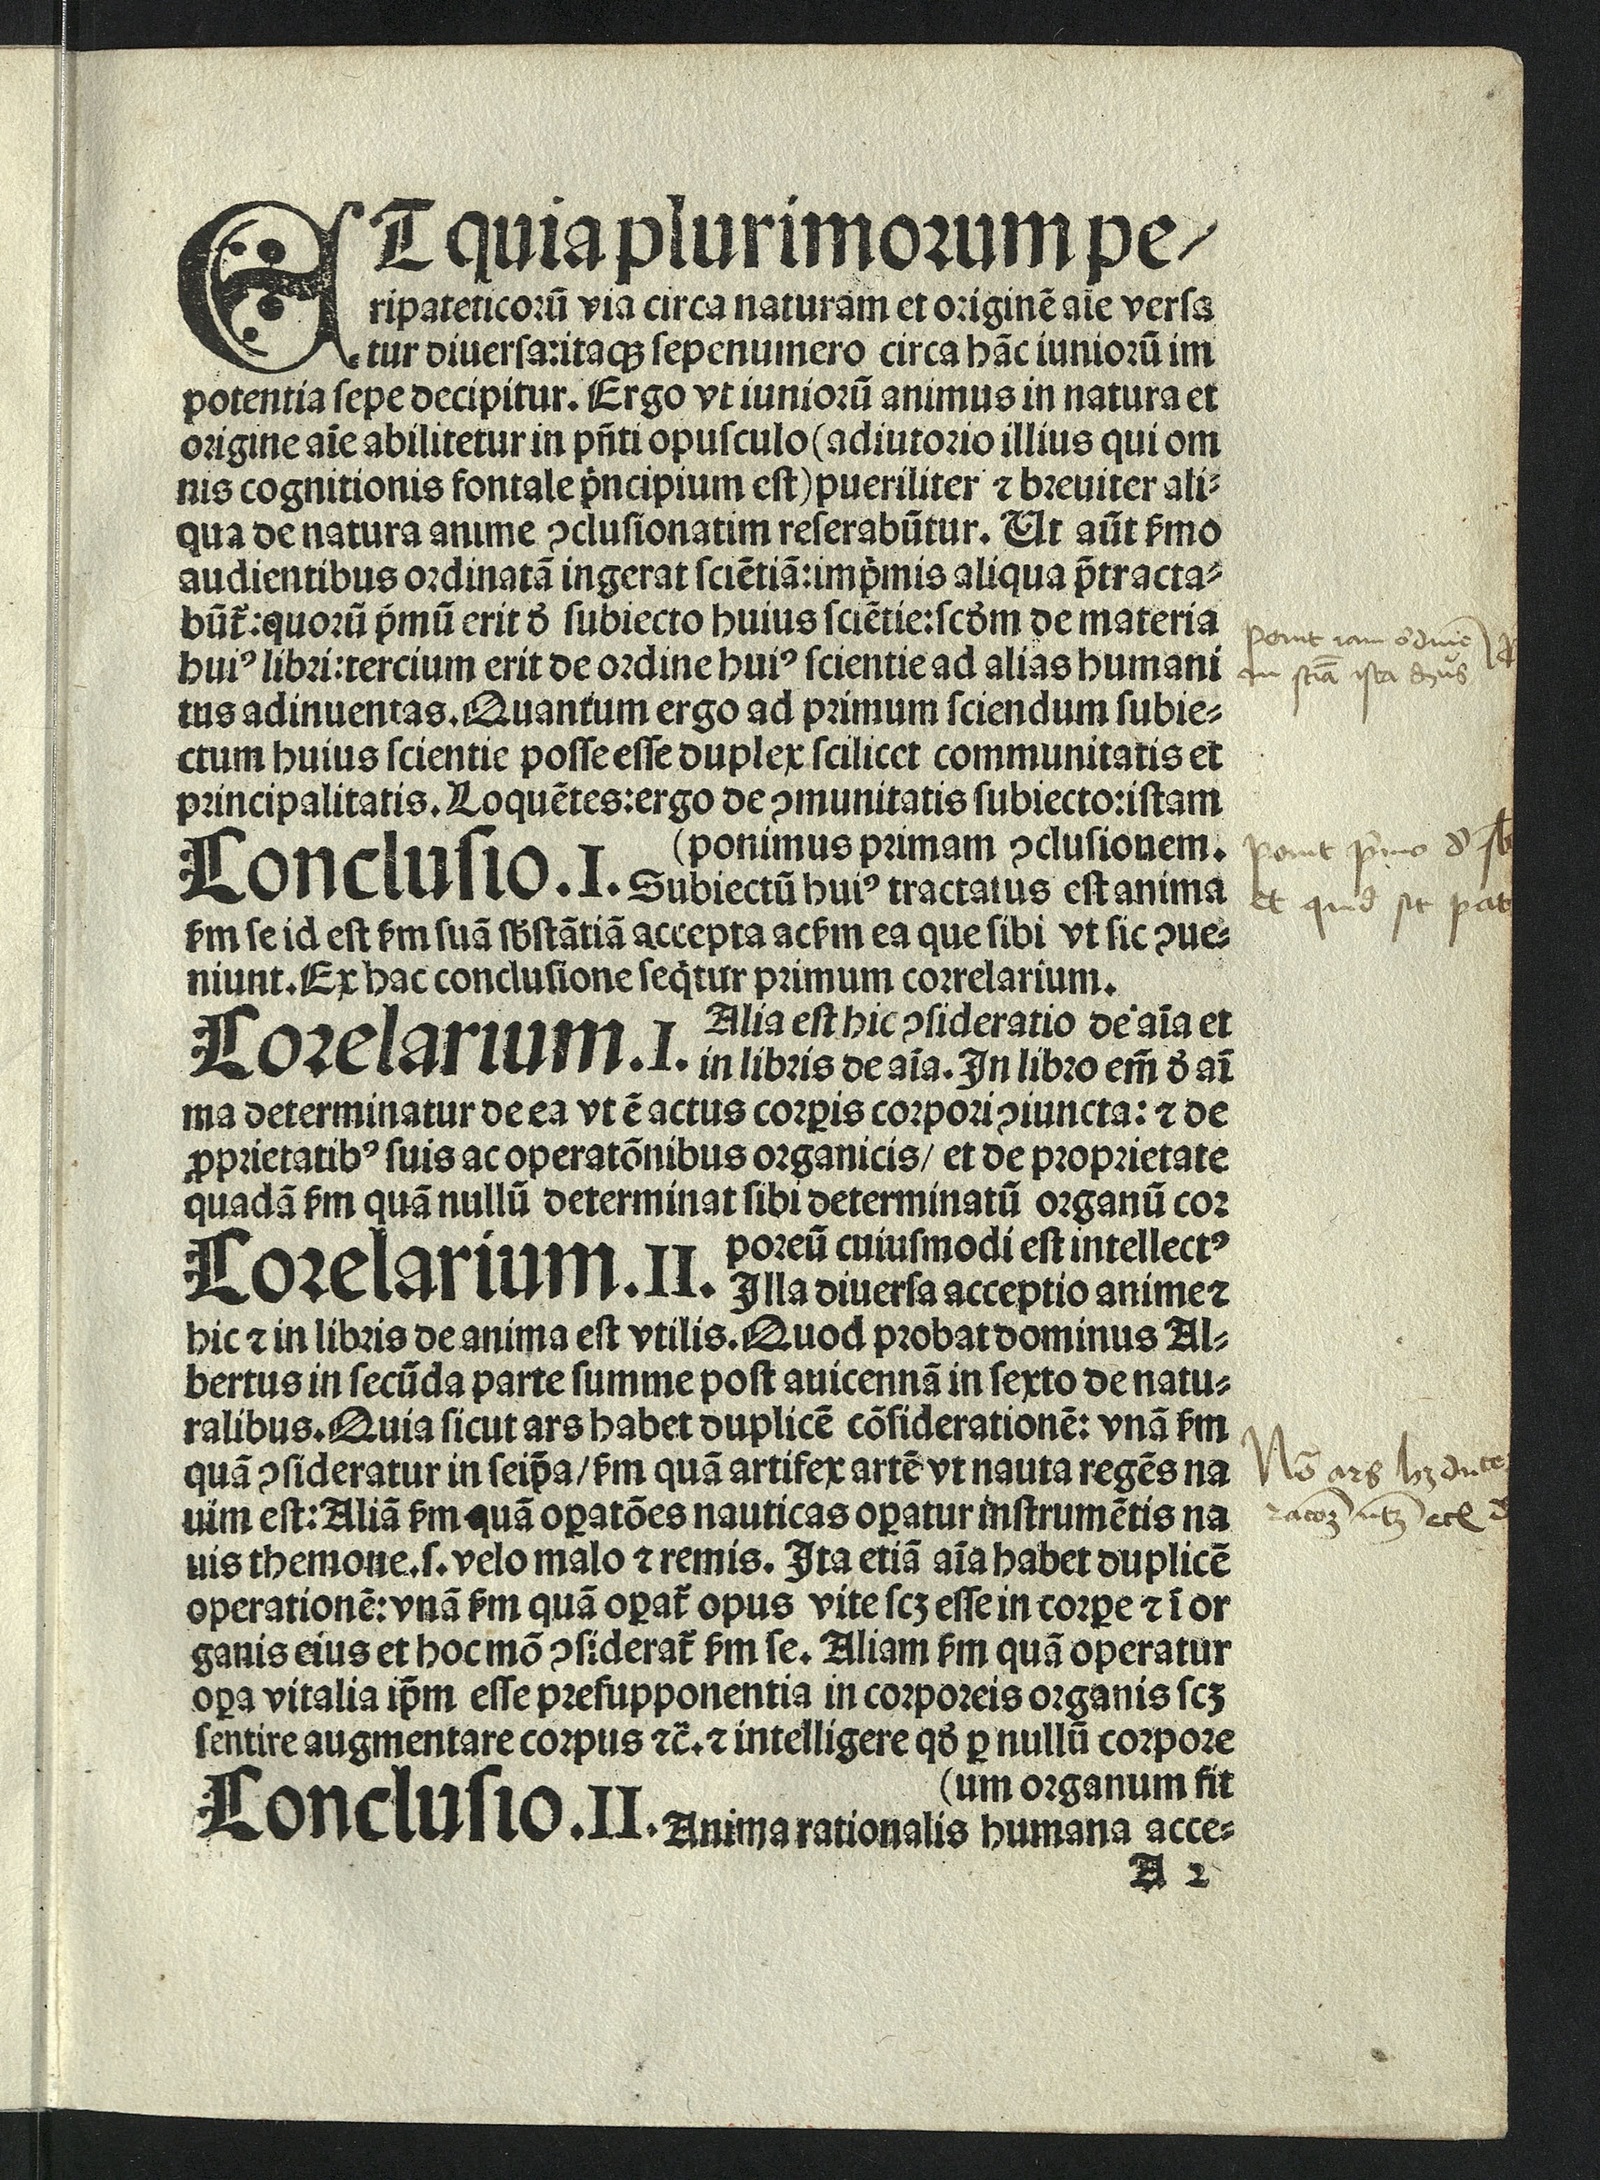 ET quia plurimorum pe/
ripateticorū via circa naturam et originē aīe versa
tur diuersa:itaqꝫ sepenumero circa hāc iuniorū im
potentia sepe decipitur. Ergo vt iuniorū animus in natura et
origine aīe abilitetur in pñti opusculo (adiutorio illius qui om
nis cognitionis fontale p̓ncipium est) pueriliter ⁊ breuiter ali⸗
qua de natura anime ꝯclusionatim reserabūtur. Ut aūt p̓mo
audientibus ordinatā ingerat sciētiā:imp̓mis aliqua p̄tracta⸗
būt̄:quorū p̓mū erit ꝺ̓ subiecto huius sciētie:scd̓m de materia
huiꝰ libri:tercium erit de ordine huiꝰ scientie ad alias humani
tus adinuentas. Quantum ergo ad primum sciendum subie⸗
ctum huius scientie posse esse duplex scilicet communitatis et
principalitatis. Loquētes:ergo de ꝯmunitatis subiecto:istam
(ponimus primam ꝯclusionem.
Conclusio .I. Subiectū huiꝰ tractatus est anima
ẜm se id est ẜm suā sb̓stātiā accepta ac ẜm ea que sibi vt sic ꝯue⸗
niunt. Ex hac conclusione seq̓tur primum correlarium.
Corelarium .I. Alia est hic ꝯsideratio de aīa et
in libris de aīa. In libro em̄ ꝺ̓ aī
ma determinatur de ea vt ē actus corꝑis corpori ꝯiuncta: ⁊ de
ꝓprietatibꝰ suis ac operatōnibus organicis/ et de proprietate
quadā ẜm quā nullū determinat sibi determinatū organū cor
Corelarium .II. poreū cuiusmodi est intellectꝰ
Illa diuersa acceptio anime ⁊
hic ⁊ in libris de anima est vtilis. Quod probat dominus Al⸗
bertus in secūda parte summe post auicennā in sexto de natu⸗
ralibus. Quia sicut ars habet duplicē cōsiderationē: vnā ẜm
quā ꝯsideratur in seip̄a/ẜm quā artifex artē vt nauta regēs na
uim est: Aliā ẜm quā oꝑatōes nauticas oꝑatur instrumētis na
uis themone.s. velo malo ⁊ remis. Ita etiā aīa habet duplicē
operationē:vnā ẜm quā oꝑat̄ opus vite scꝫ esse in corꝑe ⁊ ī or
ganis eius et hoc mō ꝯsiderat̄ ẜm se. Aliam ẜm quā operatur
oꝑa vitalia ip̄m esse presupponentia in corporeis organis scꝫ
sentire augmentare corpus ⁊c̄. ⁊ intelligere qꝺ̓ ꝑ nullū corpore
(um organum fit
Conclusio .II. Anima rationalis humana acce⸗
A 2
ponit
ponit p̓mo
et quid sit
Nō ars